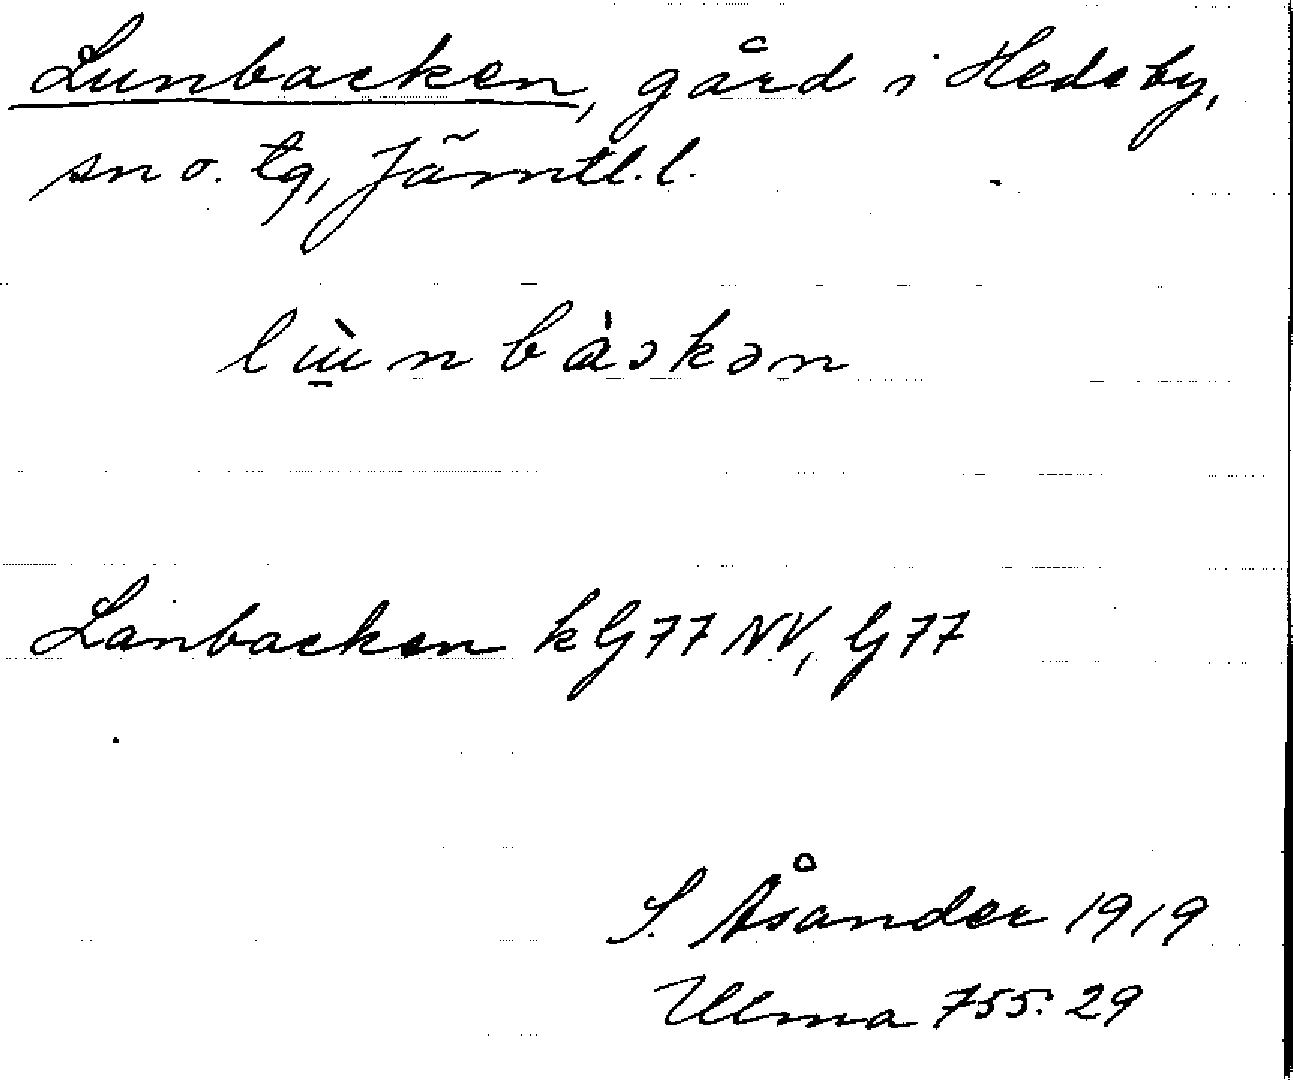 Lunbacken, gård i Hedeby,
sn o. tg, Jämtl. l.
Lånbacken k G 77 NV, G 77
S. Åsander 1919
Ulma 755: 29